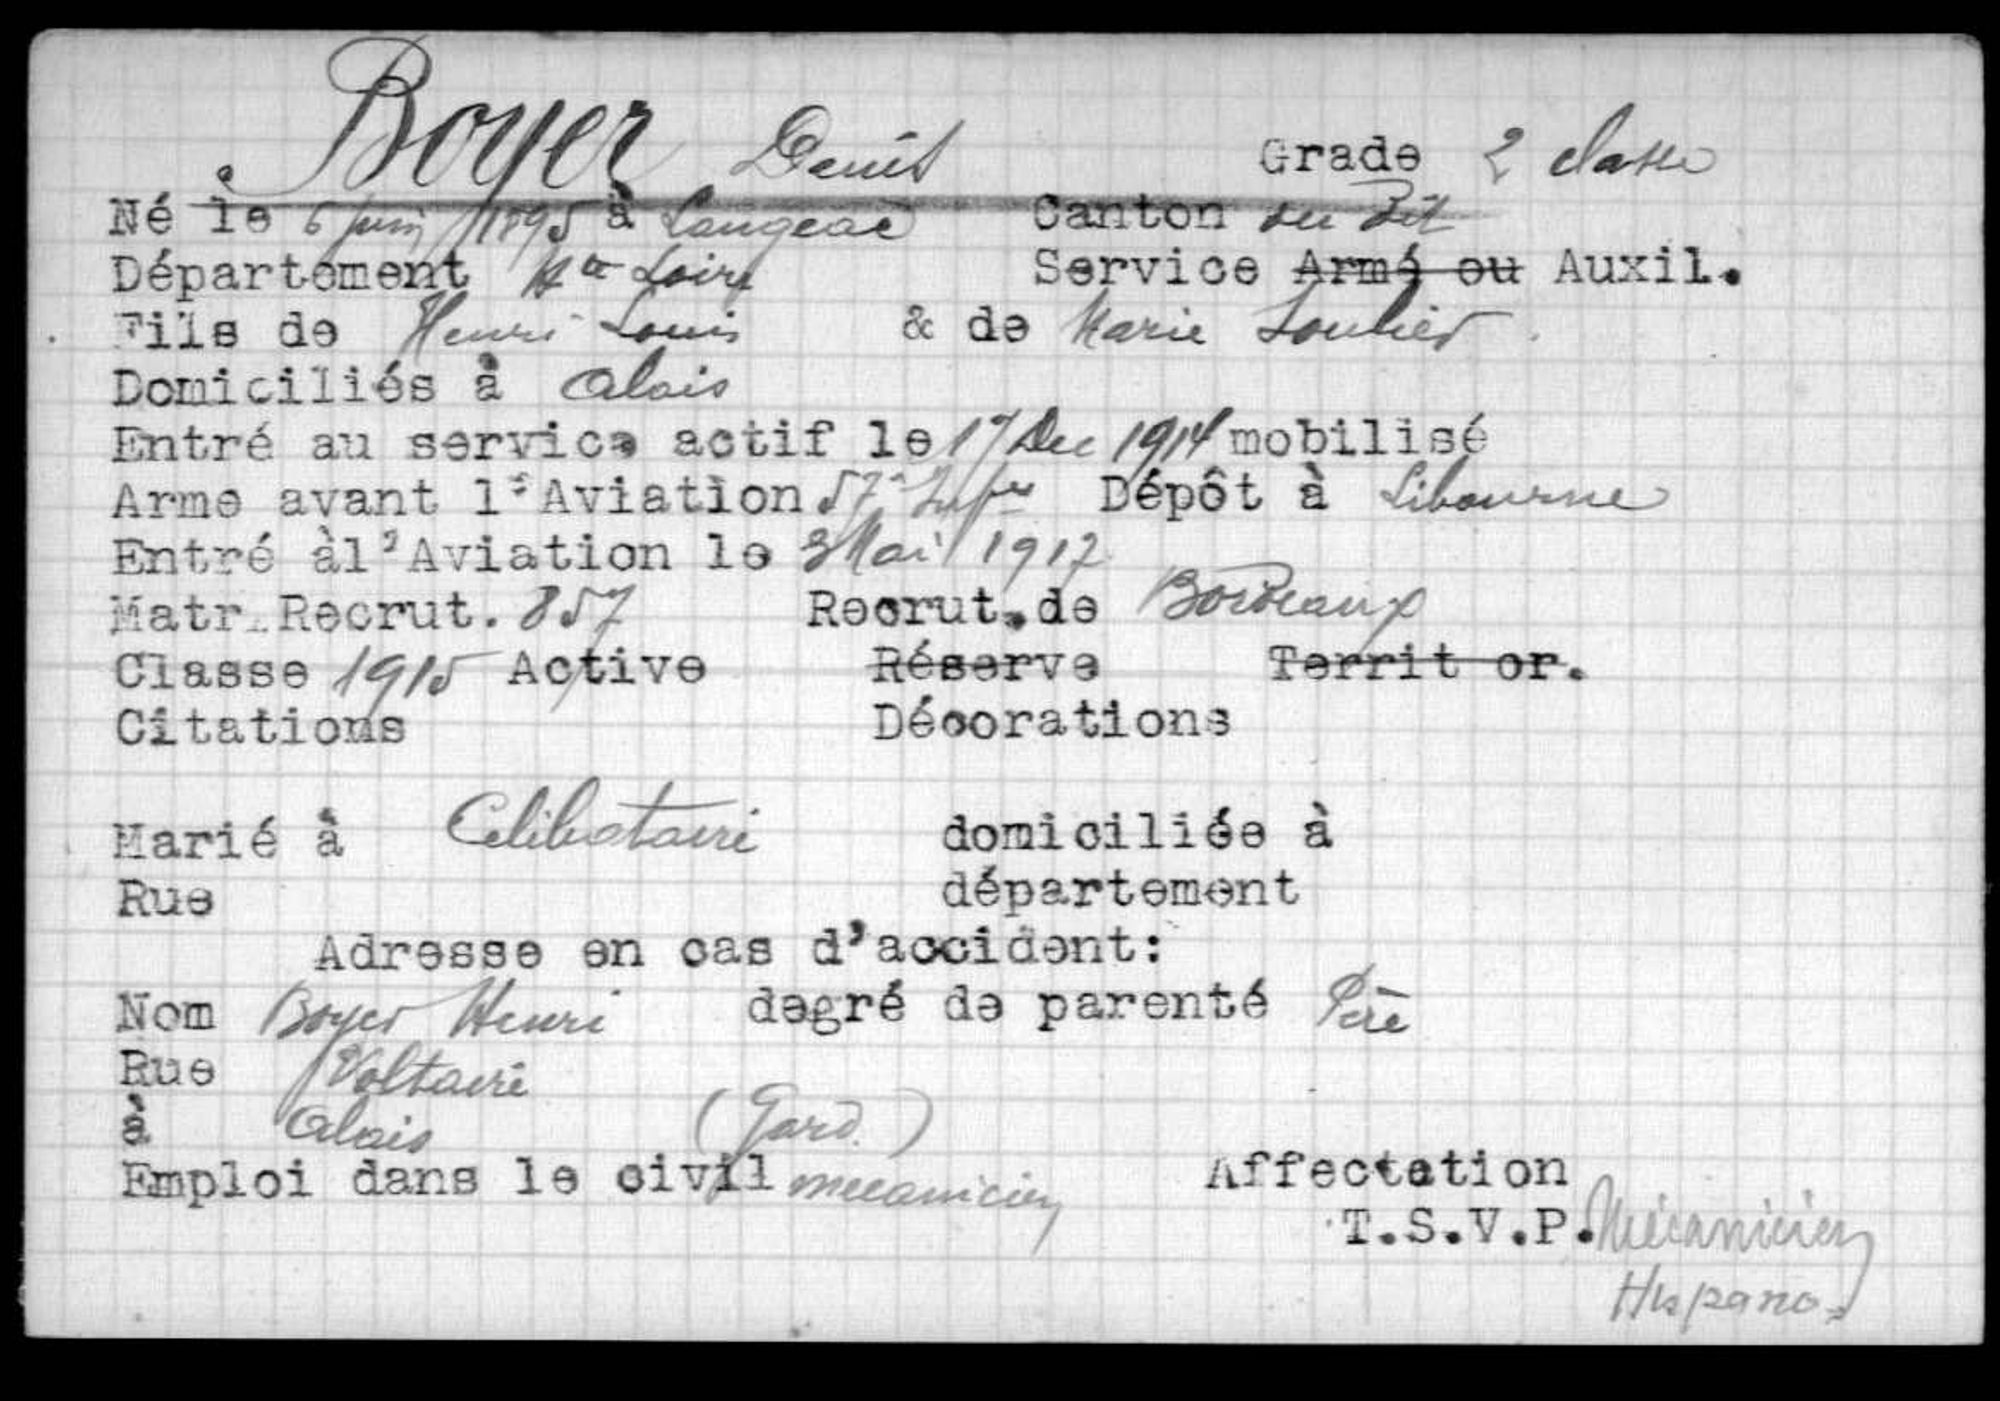 Boyer Denis Grade 2 classe
Né le 6 juin 1895 à Langeac Canton du dit
Département Hte Loire Service Armé ou Auxil.
Fils de Henri Louis & de Marie Soulier
Domiciliés à Alais
Entré au service actif le 17 Dec 1914 mobilisé
Arme avant l'Aviation 57e Infie Dépôt à Libourne
Entré àl'Aviation le 3 Mai 1917
Matr. Recrut. 857 Recrut. de Bordeaux
Classe 1915 Active Réserve Territ or.
Citations Décorations
Marié à Celibataire domiciliée à
Rue département
Adresse en cas d'accident:
Nom Boyer Henri degré de parenté Père
Rue Voltaire
à Alais (Gard.)
Emploi dans le civil mecanicien Affectation
T.S.V.P. Mécanicien
Hispano.